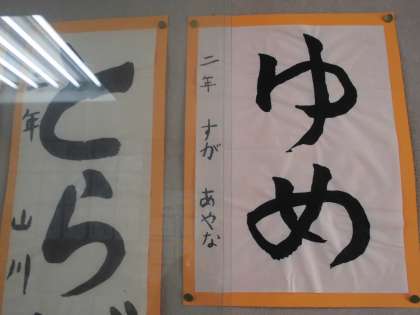 ゆめ
二年 すが あやな
とら
年 山川